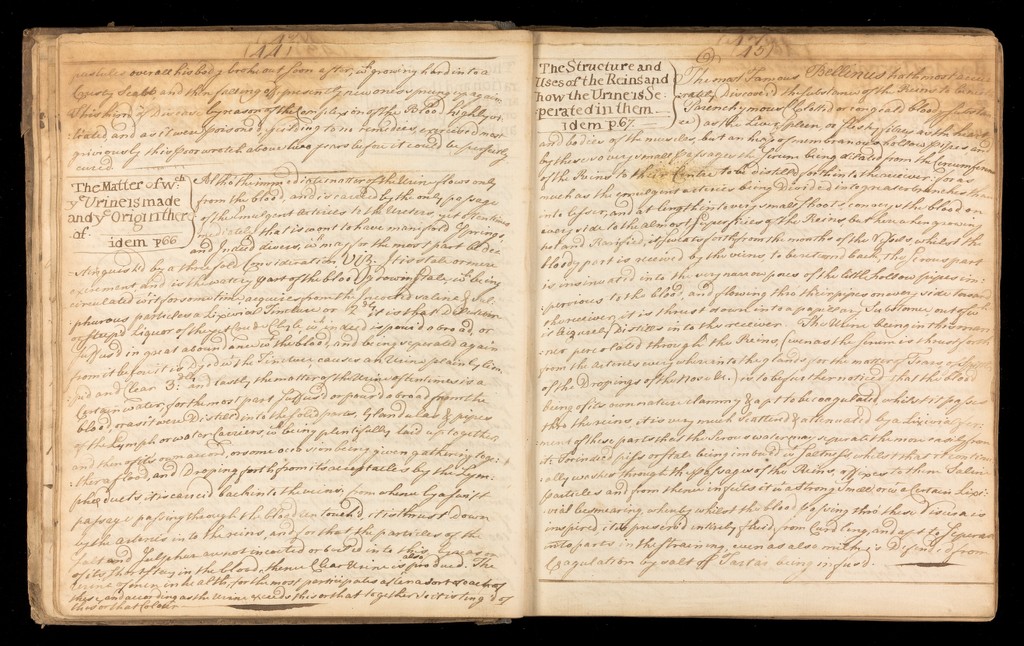 44
pustules over all his body broke out soon after, wch growing hard into a
Crusty Scabb and then falling of, presently new ones sprung up again
This kind of Disease by reason of the Complexion of the Blood highly vi-
-tiated and as it were poisoned yeilding to no remedies, exercised most
griviously this poor wretch above two years before it could be perfectly
cured
The Matter of wch
ye Urine is made
and ye Origin ther
of.
idem p66
Altho the immediate matter of the Urine flows only
from the blood and is carried by the only passage
of the Emulgent Arteries to the Ureters, yet
mediately that is wont to have manifold Springs
and Indeed divers, wch may for the most part be di-
-stinguish'd by a threefold Consideration Viz. It is stale or meer
excrement, and is the watery part of the blood, growing stale, wch being
circulated in it for some time acquires from the Saline & Sul-
phurous particles a Lixivial Tincture or 2dly it is that
or Liquor of the wch indeed is poured abroad, or
infused in great abundance into the blood, and being seperated again
from it before it is Dyed wth the Tincture, causes an Urine plainly Lim-
pid and Clear 3dly and lastly the matter of the Urine oftentimes is a
Certain water, for the most part or poured abroad from the
blood, or as it were Distilled into the solid parts, Glandulas & pipes
of the Lymph or water Carriers, wch being plentifully laid up together
and then of its own accord, or some occasion being given gathering toge-
ther a flood, and Droping forth from its receptacles by the Lym-
pheducts it is carried back into the veins, from whence by a swift
passage passing through the blood it is thrust down
by the Arteries into the reins, and for that the particles of the
salt and Sulphur are not incocted or boiled into this by reason
of its short stay in the blood, thence Clear Urine is also produced. The
Urine of men in health, for the most participates after a sort of each of
these, and according as the Urine exceeds this or that together so it is ting'd of
this or that Colour
45
The Structure and
Uses of the Reins and
how the Urine is Se-
perated in them
idem p.67
The most Famous Bellinus hath most accu-
rately Discover'd the substance of the Reins to
Parenchymous (Clotted or congealed blood)
as the Liver, spleen, or fleshy, fibres as the heart
and bodies of the muscles, but an heap of membranous & hollow pipes and
by these so very small passages the Serum being distilled from the Circumference
of the Reins to their Centre to be distilled forth into the receiver: for as
much as the emulgent arteries being Divided into greater branches then
into lesser, and at length into very small shoots conveys the blood on
every side to the almost superficies of the Reins, but
and Rarified, it sweats forth from the mouths of the Vessels, whilst the
bloody part is received by the veins, to be returned back, the serous part
is insinuated into the very narrow pores of the little hollow pipes im-
pervious to the blood, and flowing thro their pipes on every side towards
the receiver, it is thrust down into a papillary Substance, out of wch
it Distills into the receiver. The Urine being in this man-
ner percolated through the Reins (even as the serum is thrust forth
from the Arteries every where into the glands, for the matter of Tears, of Spittle
of the Dropings of the Nose &c.) is to be further noticed, that the blood
being of its own nature clammy & apt to be coagulated, whilst it passes
thro the reins, it is very much scattered & attenuated by a Lixivial fer-
ment of those parts that the Serous water may seperate the more easily from
it. Stale being imbued wth saltness whilst that it continu-
ally washes through the passages of the Reins, affixes to them Saline
particles and from thence infects it wth a strong Smell, or wth a Certain Lixi-
vial besmearing, whereby whilst the blood passing thro these Viscera is
inspired, it is preserved intirely fluid, from Curdling, and apt to seperate
into parts in the straining, even as also milk is Defended from
Coagulation by salt of Tartar being infused.